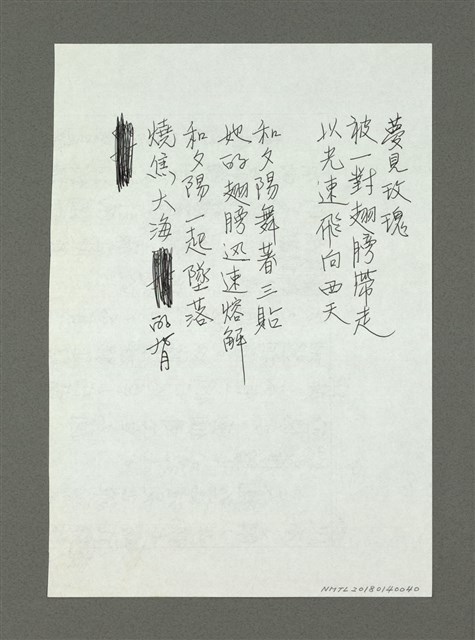 夢見玫瑰
被一對翅膀帶走
以光速飛向西天
和夕陽舞著三貼
她的翅膀迅速熔解
和夕陽一起墜落
燒焦大海的背
NMTL20180140040